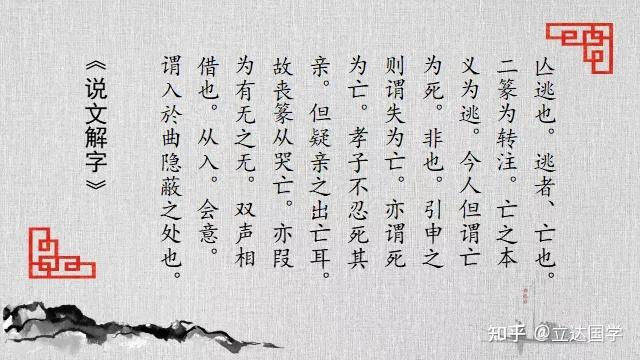 亾逃也。逃者、亡也。
二篆为转注。亡之本
义为逃。今人但谓亡
为死。非也。引申之
则谓失为亡。亦谓死
为亡。孝子不忍死其
亲。但疑亲之出亡耳。
故喪篆从哭亡。亦叚
为有无之无。双声相
借也。从入。会意。
谓入於曲隐蔽之处也。
《说文解字》
知乎 @立达国学